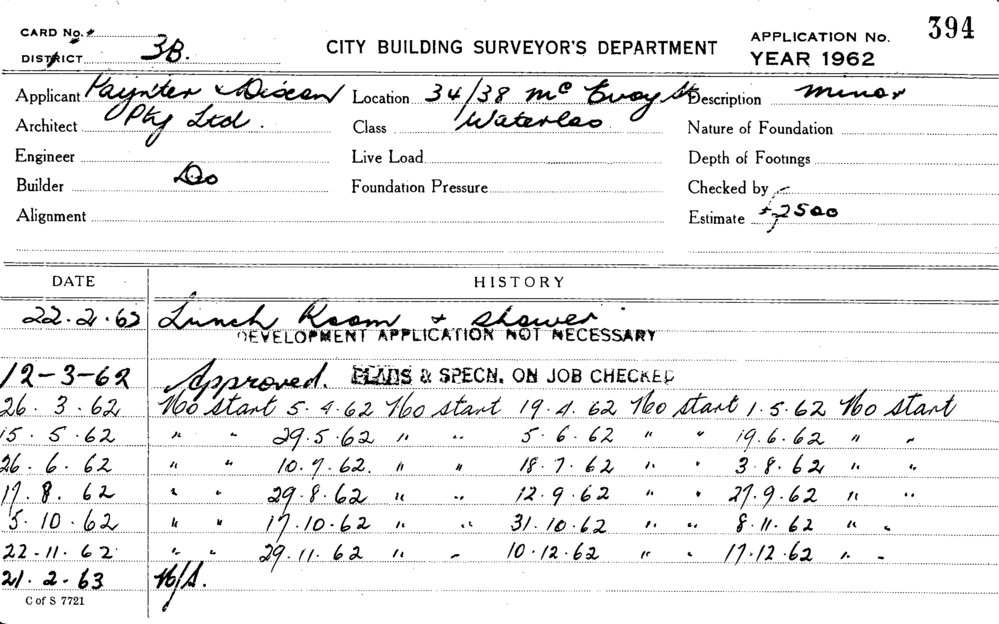 CARD No.
DISTRICT 3B.
CITY BUILDING SURVEYOR'S DEPARTMENT
APPLICATION No. 394
YEAR 1962
Applicant Paynter & Dixon Location 34/38 McEvoy St Description minor
Architect Pty Ltd. Class Waterloo Nature of Foundation
Engineer Live Load Depth of Footings
Builder Do Foundation Pressure Checked by
Alignment Estimate £2500
DATE HISTORY
22.2.62 Lunch Room & shower
DEVELOPMENT APPLICATION NOT NECESSARY
12-3-62 Approved. PLANS & SPECN. ON JOB CHECKED
26.3.62 No start 5.4.62 No start 19.4.62 No start 1.5.62 No start
15.5.62 " " 29.5.62 " " 5.6.62 " " 19.6.62 " "
26.6.62 " " 10.7.62. " " 18.7.62 " " 3.8.62 " "
17.8.62 " " 29.8.62 " " 12.9.62 " " 27.9.62 " "
5.10.62 " " 17.10.62 " " 31.10.62 " " 8.11.62 " "
22-11.62 " " 29.11.62 " " 10.12.62 " " 17.12.62 " "
21.2.63 N/S.
C of S 7721